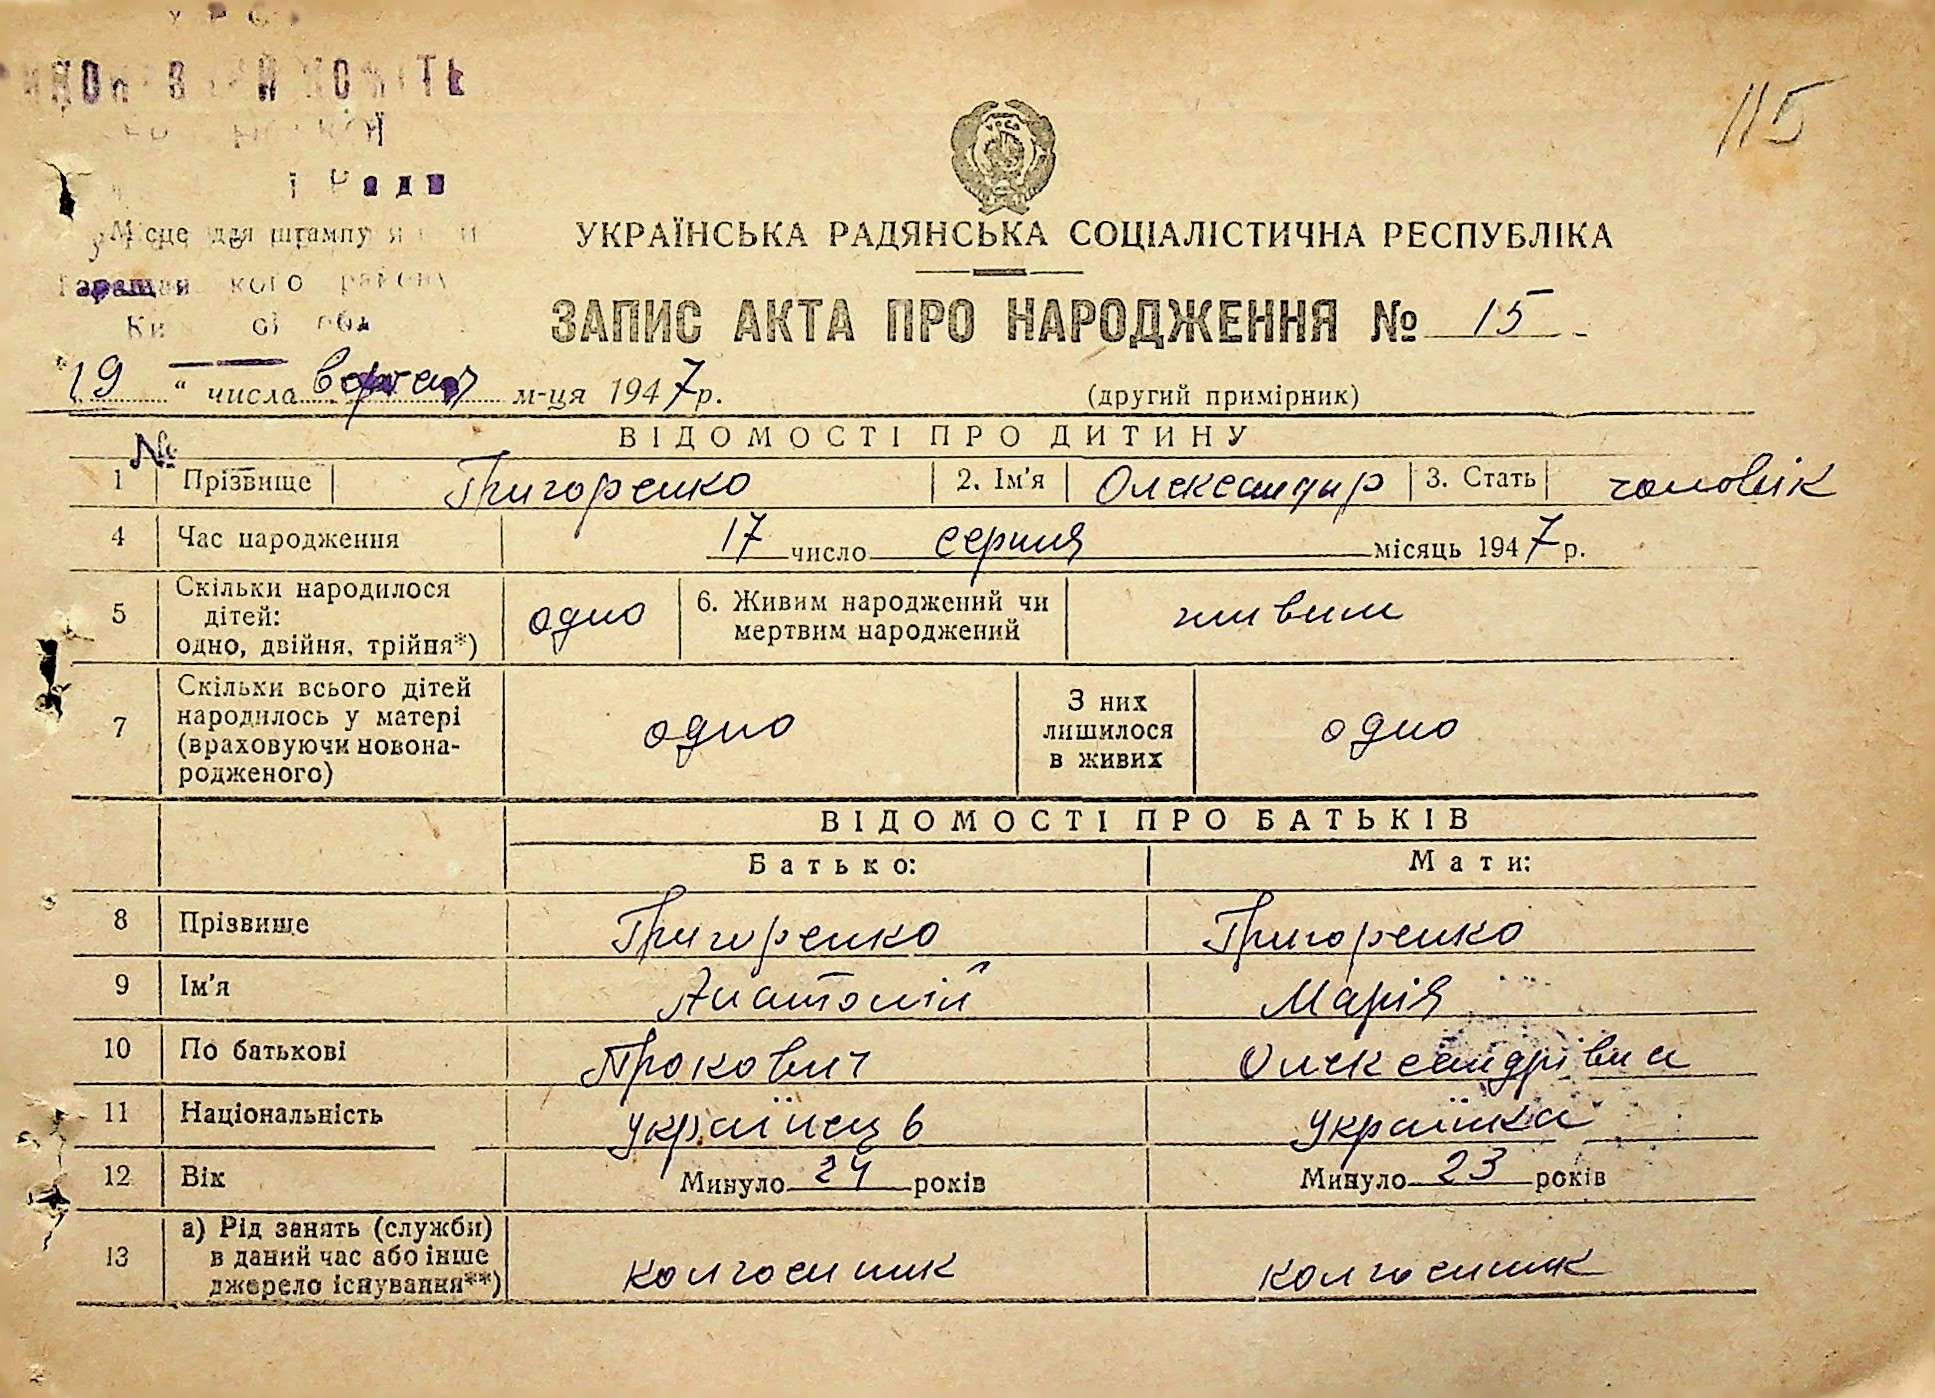 115
Ради
Місце для штампу
кого району
УКРАЇНСЬКА РАДЯНСЬКА СОЦІАЛІСТИЧНА РЕСПУБЛІКА
ЗАПИС АКТА ПРО НАРОДЖЕННЯ № 15
"19" числа м-ця 1947 р.
(другий примірник)
ВІДОМОСТІ ПРО ДИТИНУ
№
1 Прізвище Григоренко 2. Ім'я Олександр 3. Стать чоловік
4 Час народження 17 число серпня місяць 1947 р.
5 Скільки народилося дітей: одно, двійня, трійня*) одно 6. Живим народжений чи мертвим народжений живим
7 Скільки всього дітей народилось у матері (враховуючи новона-родженого) одно З них лишилося в живих одно
ВІДОМОСТІ ПРО БАТЬКІВ
Батько: Мати:
8 Прізвище Григоренко Григоренко
9 Ім'я Анатолій Марія
10 По батькові Прокович Олександрівна
11 Національність українець українка
12 Вік Минуло 24 років Минуло 23 років
13 а) Рід занять (служби) в даний час або інше джерело існування**) колгоспник колгоспник